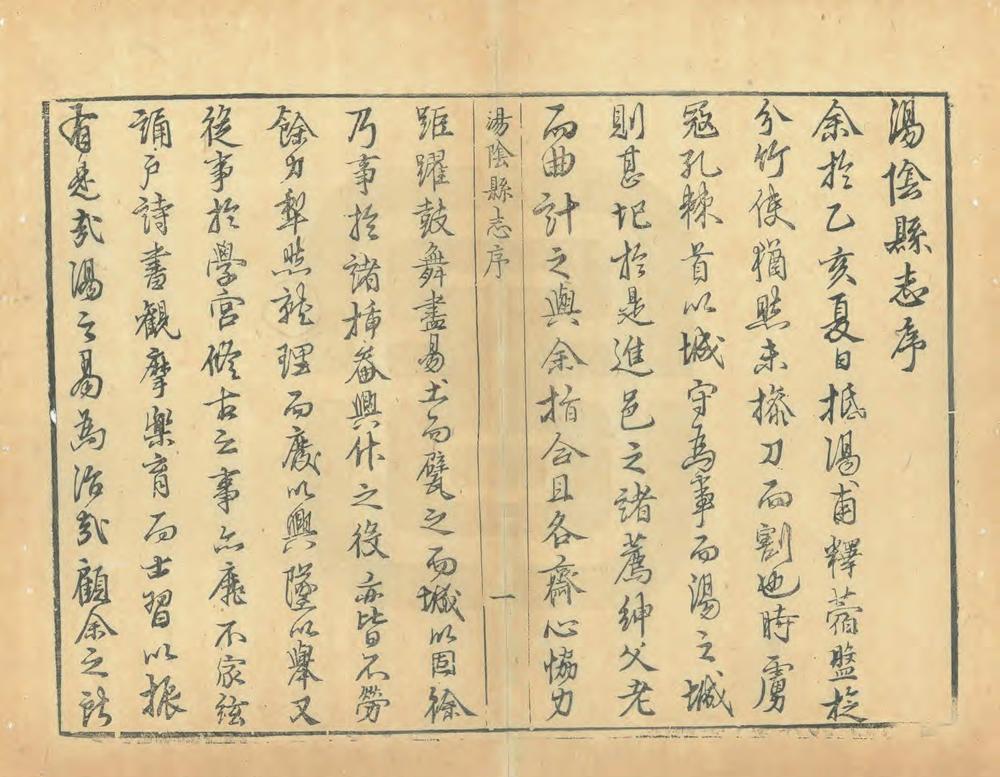 湯陰縣志序
余於乙亥夏日抵湯甫釋蒞盤於
分竹使猶然未操刀而割也時虜
寇孔棘首以城守為事而湯之城
則甚圮於是進邑之諸薦紳父老
而曲計之與余指合且各齋心協力
湯陰縣志序
一
距躍鼓舞盡易土而甓之而城以固徐
乃事於諸插畚興作之役亦皆不勞
餘力犁然就理而廢以興墜以舉又
從事於學宮修古之事亦靡不家絃
誦戶詩書觀摩樂育而士習以振
有是哉湯之易為治哉顧余之詺